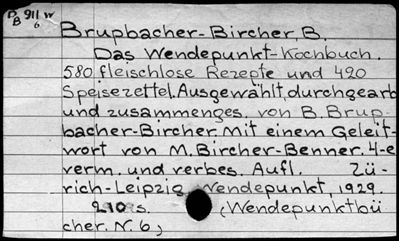 D 911 w
B 6
Brupbacher-Bircher, B.
Das Wendepunkt-Kochbuch.
580 fleischlose Rezepte und 420
Speisezettel. Ausgewählt, durchgearb
und zusammenges. von B. Brup-
bacher-Bircher. Mit einem Geleit-
wort von M. Bircher-Benner. 4-e
verm. und verbes. Aufl. Zü-
rich-Leipzig Wendepunkt, 1929.
210 s. (Wendepunktbü
cher. N. 6)